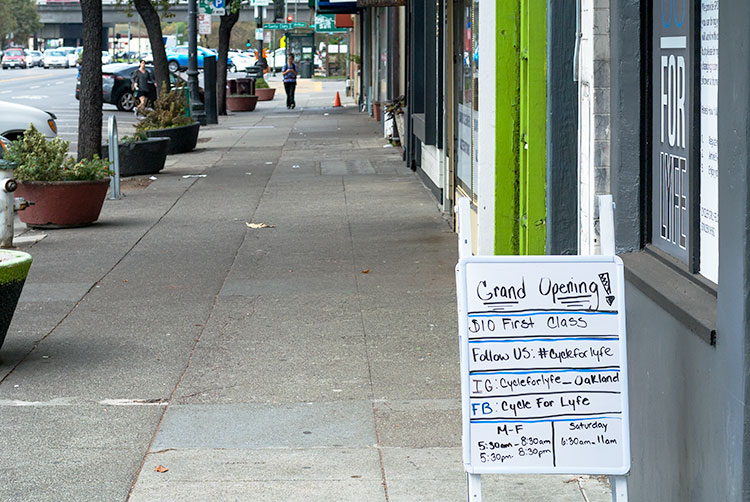 Grand Opening!
$10 First Class
Follow US: #Cycleforlyfe
IG: Cycleforlyfe_Oakland
FB: Cycle For Lyfe
M-F
5:30am-8:30am
5:30pm-8:30pm
Saturday
6:30am-11am
FOR
LYFE